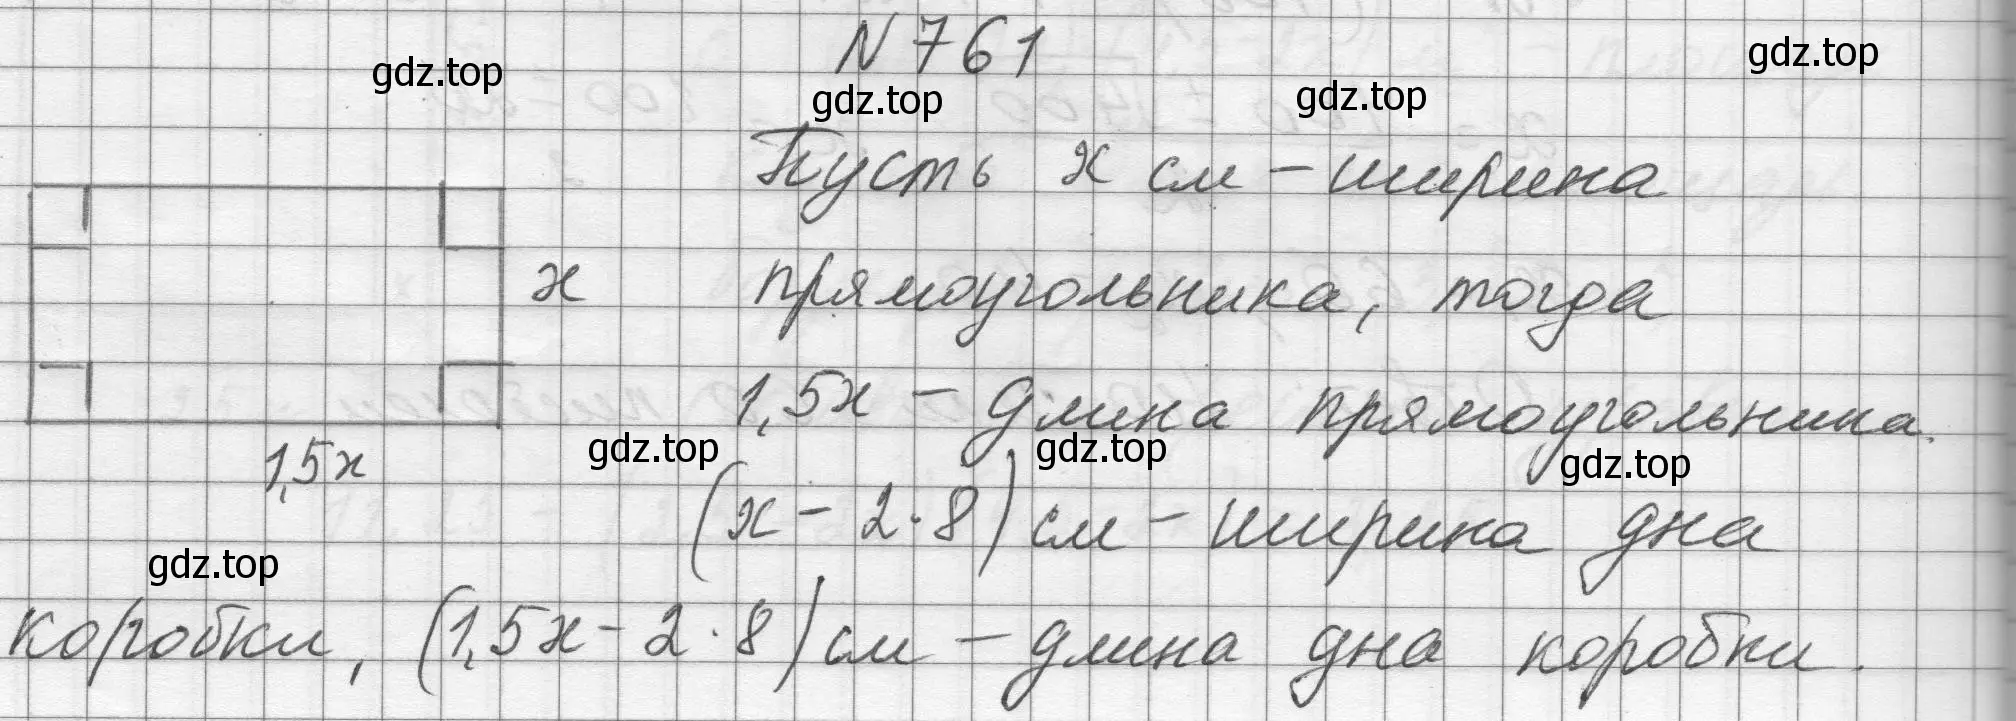 N 761
gdz.top
gdz.top
gdz.top
gdz.top
Пусть x см - ширина
x
прямоугольника, тогда
1,5x - длина прямоугольника.
1,5x
gdz.top
gdz.top
gdz.top
(x - 2·8) см - ширина дна
gdz.top
коробки, (1,5x - 2·8) см - длина дна коробки.